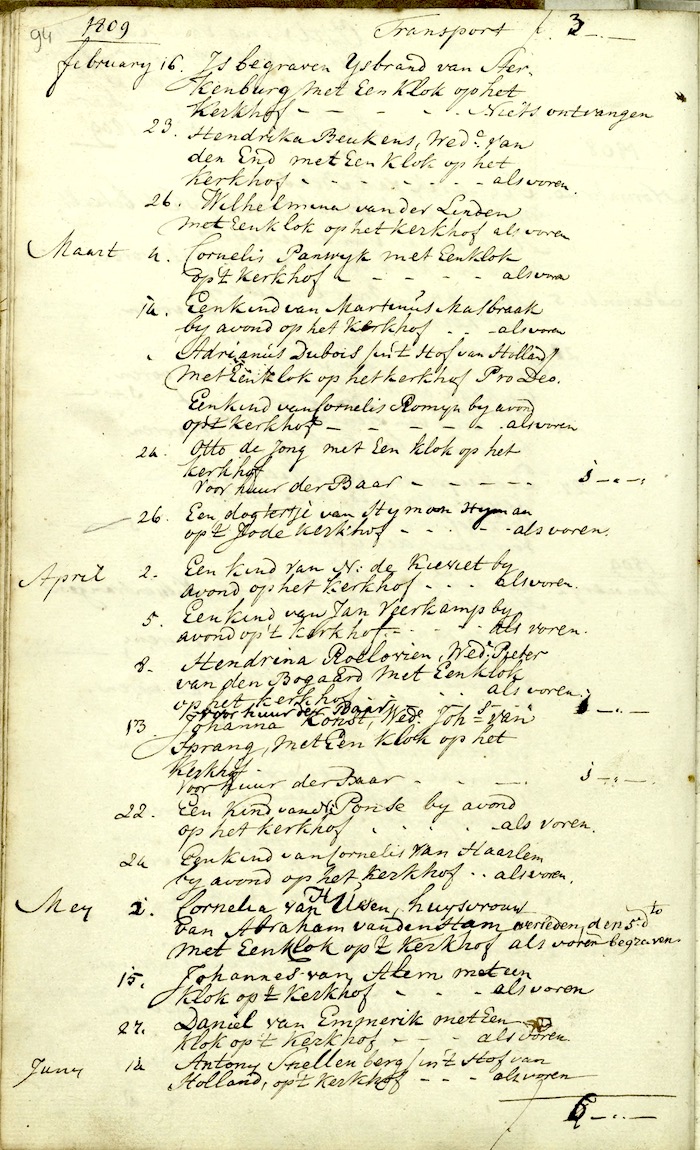 94 1809 Transport f. 3 _ .. _
february 16. Is begraven Ysbrand van Ster-
kenburg met Een klok op het
kerkhof - - - - . . Niets ontvangen
23. Hendrika Beukens, Wed.e van
den End met Een klok op het
kerkhof - - - - - - - als voren.
26. Wilhelmina van der Linden
met Een klok op het kerkhof als voren
Maart 4. Cornelis Panwyk met Een klok
op't kerkhof - - - - - als voren
14. Een kind van Martinus Malbraak
by avond op het kerkhof . . - als voren
Adrianus Dubois in't Hof van Holland
met Een klok op het kerkhof Pro Deo.
Een kind van Cornelis Romyn by avond
op't kerkhof - - - - - . als voren
24. Otto de Jong met Een klok op het
kerkhof
voor huur der Baar - - - - - 1 - .. -
26. Een dogtertje van Hyman
op't Jode kerkhof - - . - - als voren.
April 2. Een kind van N: de Kieviet by
avond op het kerkhof - - - als voren.
5. Een kind van Jan Veerkamp by
avond op't kerkhof. - . - - als voren.
8. Hendrina Roelovzen, Wed.e Pieter
van den Bogaard met Een klok
op het kerkhof - - - als voren.
voor huur der Baar - 1 - .. -
13. Johanna Konst, Wed.e Joh.s van
Sprang, met Een klok op het
kerkhof
voor huur der Baar - - - - 1 - .. -
22. Een kind van N: Ponse by avond
op het kerkhof . . . . - als voren.
24 Een kind van Cornelis van Haarlem
by avond op het kerkhof . . als voren.
Mey Cornelia van Ussen, huysvrouw
van Abraham van den Stam overleden, den 5.d to
met Een klok op't kerkhof als voren begraven
15. Johannes van Alem met een
klok op't kerkhof - - - als voren
27. Daniel van Emmerik met Een
klok op't kerkhof - - - als voren.
Juny 14 Antony Snellenberg in't Hof van
Holland, op't kerkhof - - - als voren
f 6 - .. -